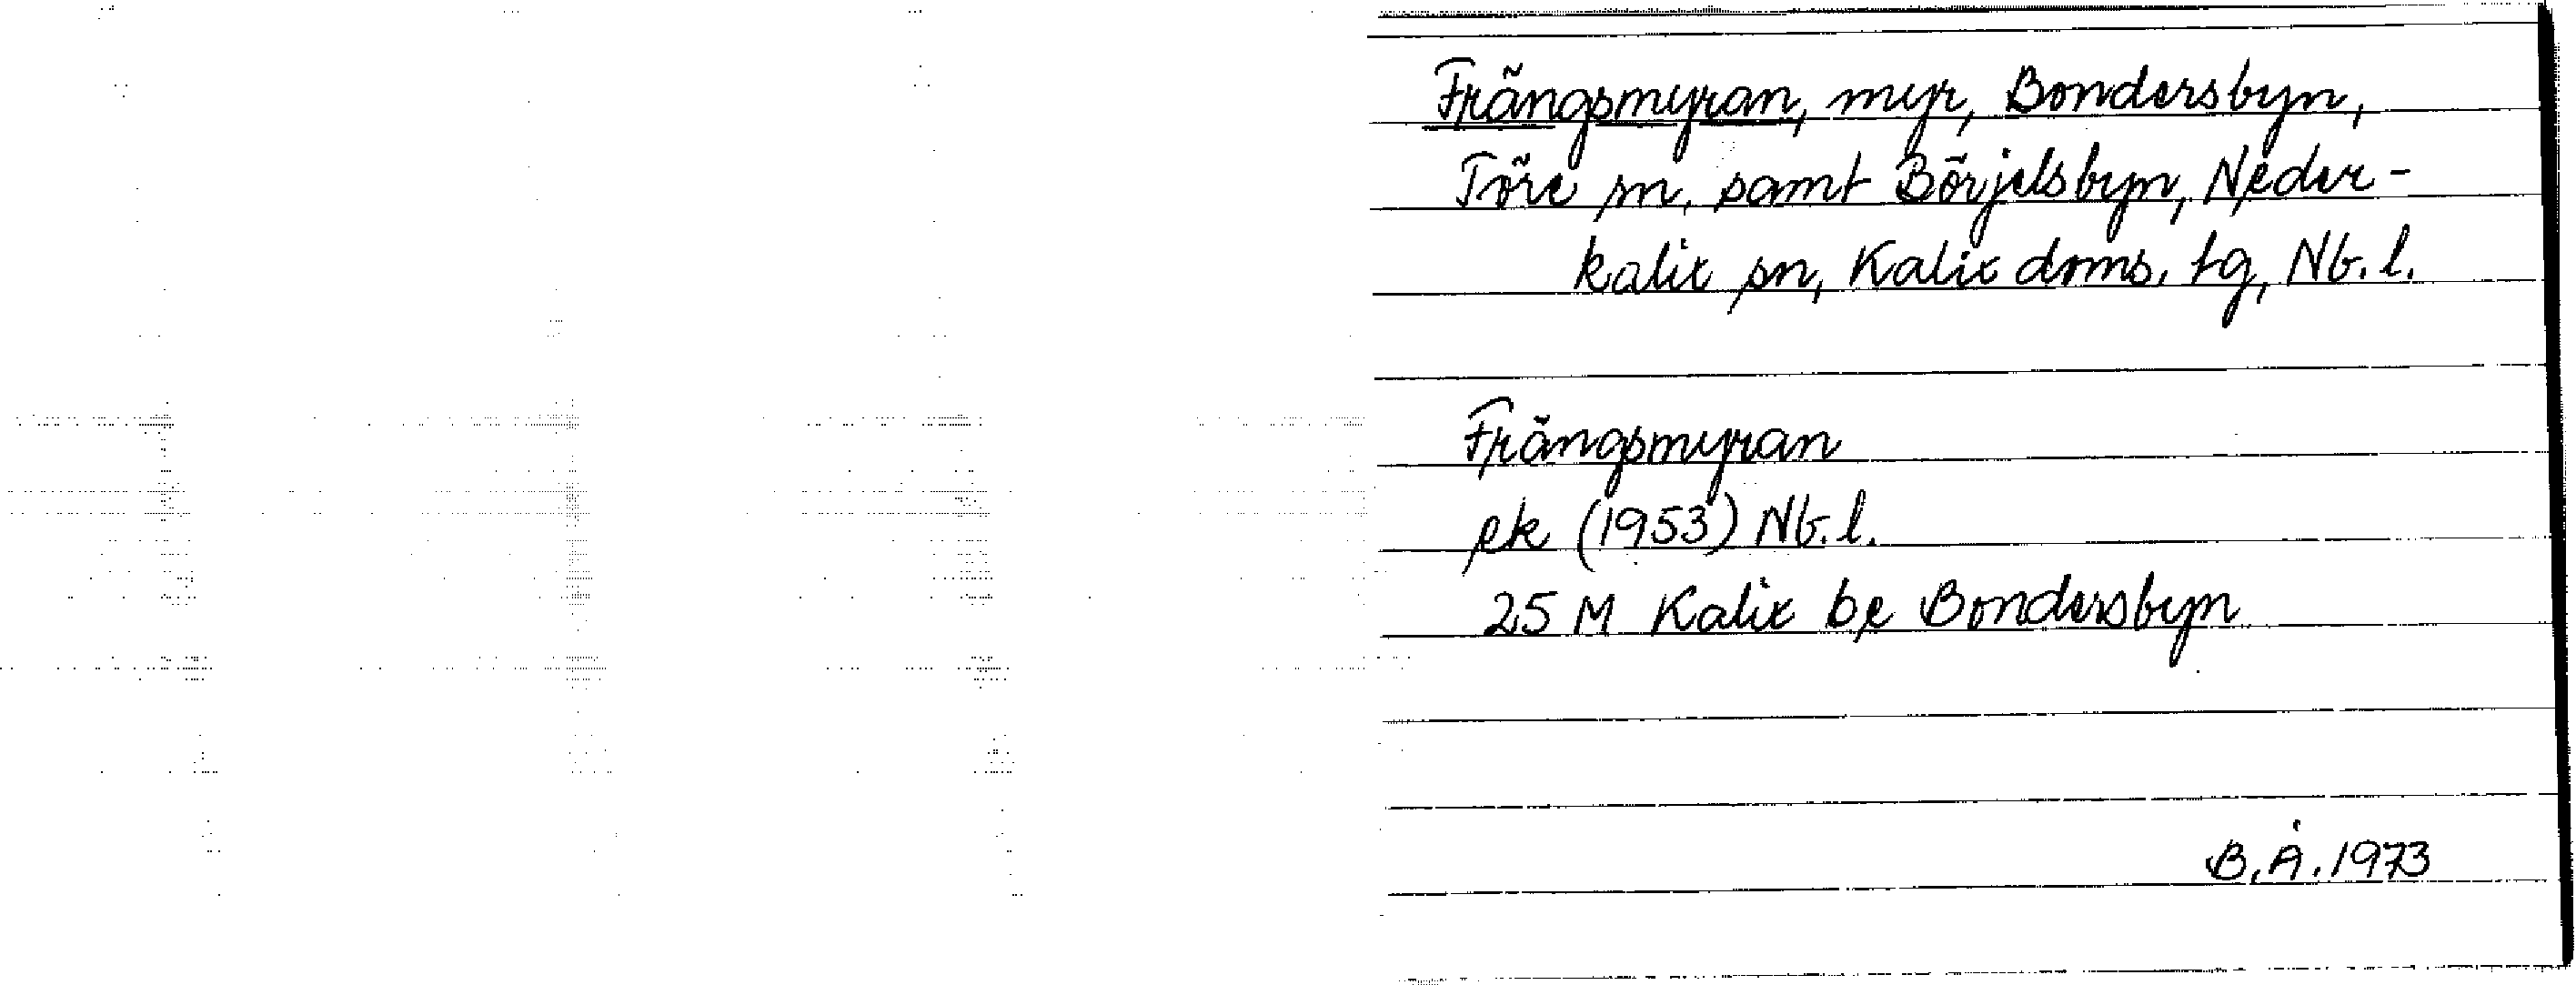 Frängsmyran, myr, Bondersbyn,
Töre sn, samt Börjelsbyn, Neder-
kalix sn, Kalix doms. tg, Nb. l.
Frängsmyran
ek (1953) Nb. l.
25 M Kalix be Bondersbyn
B. Å. 1973